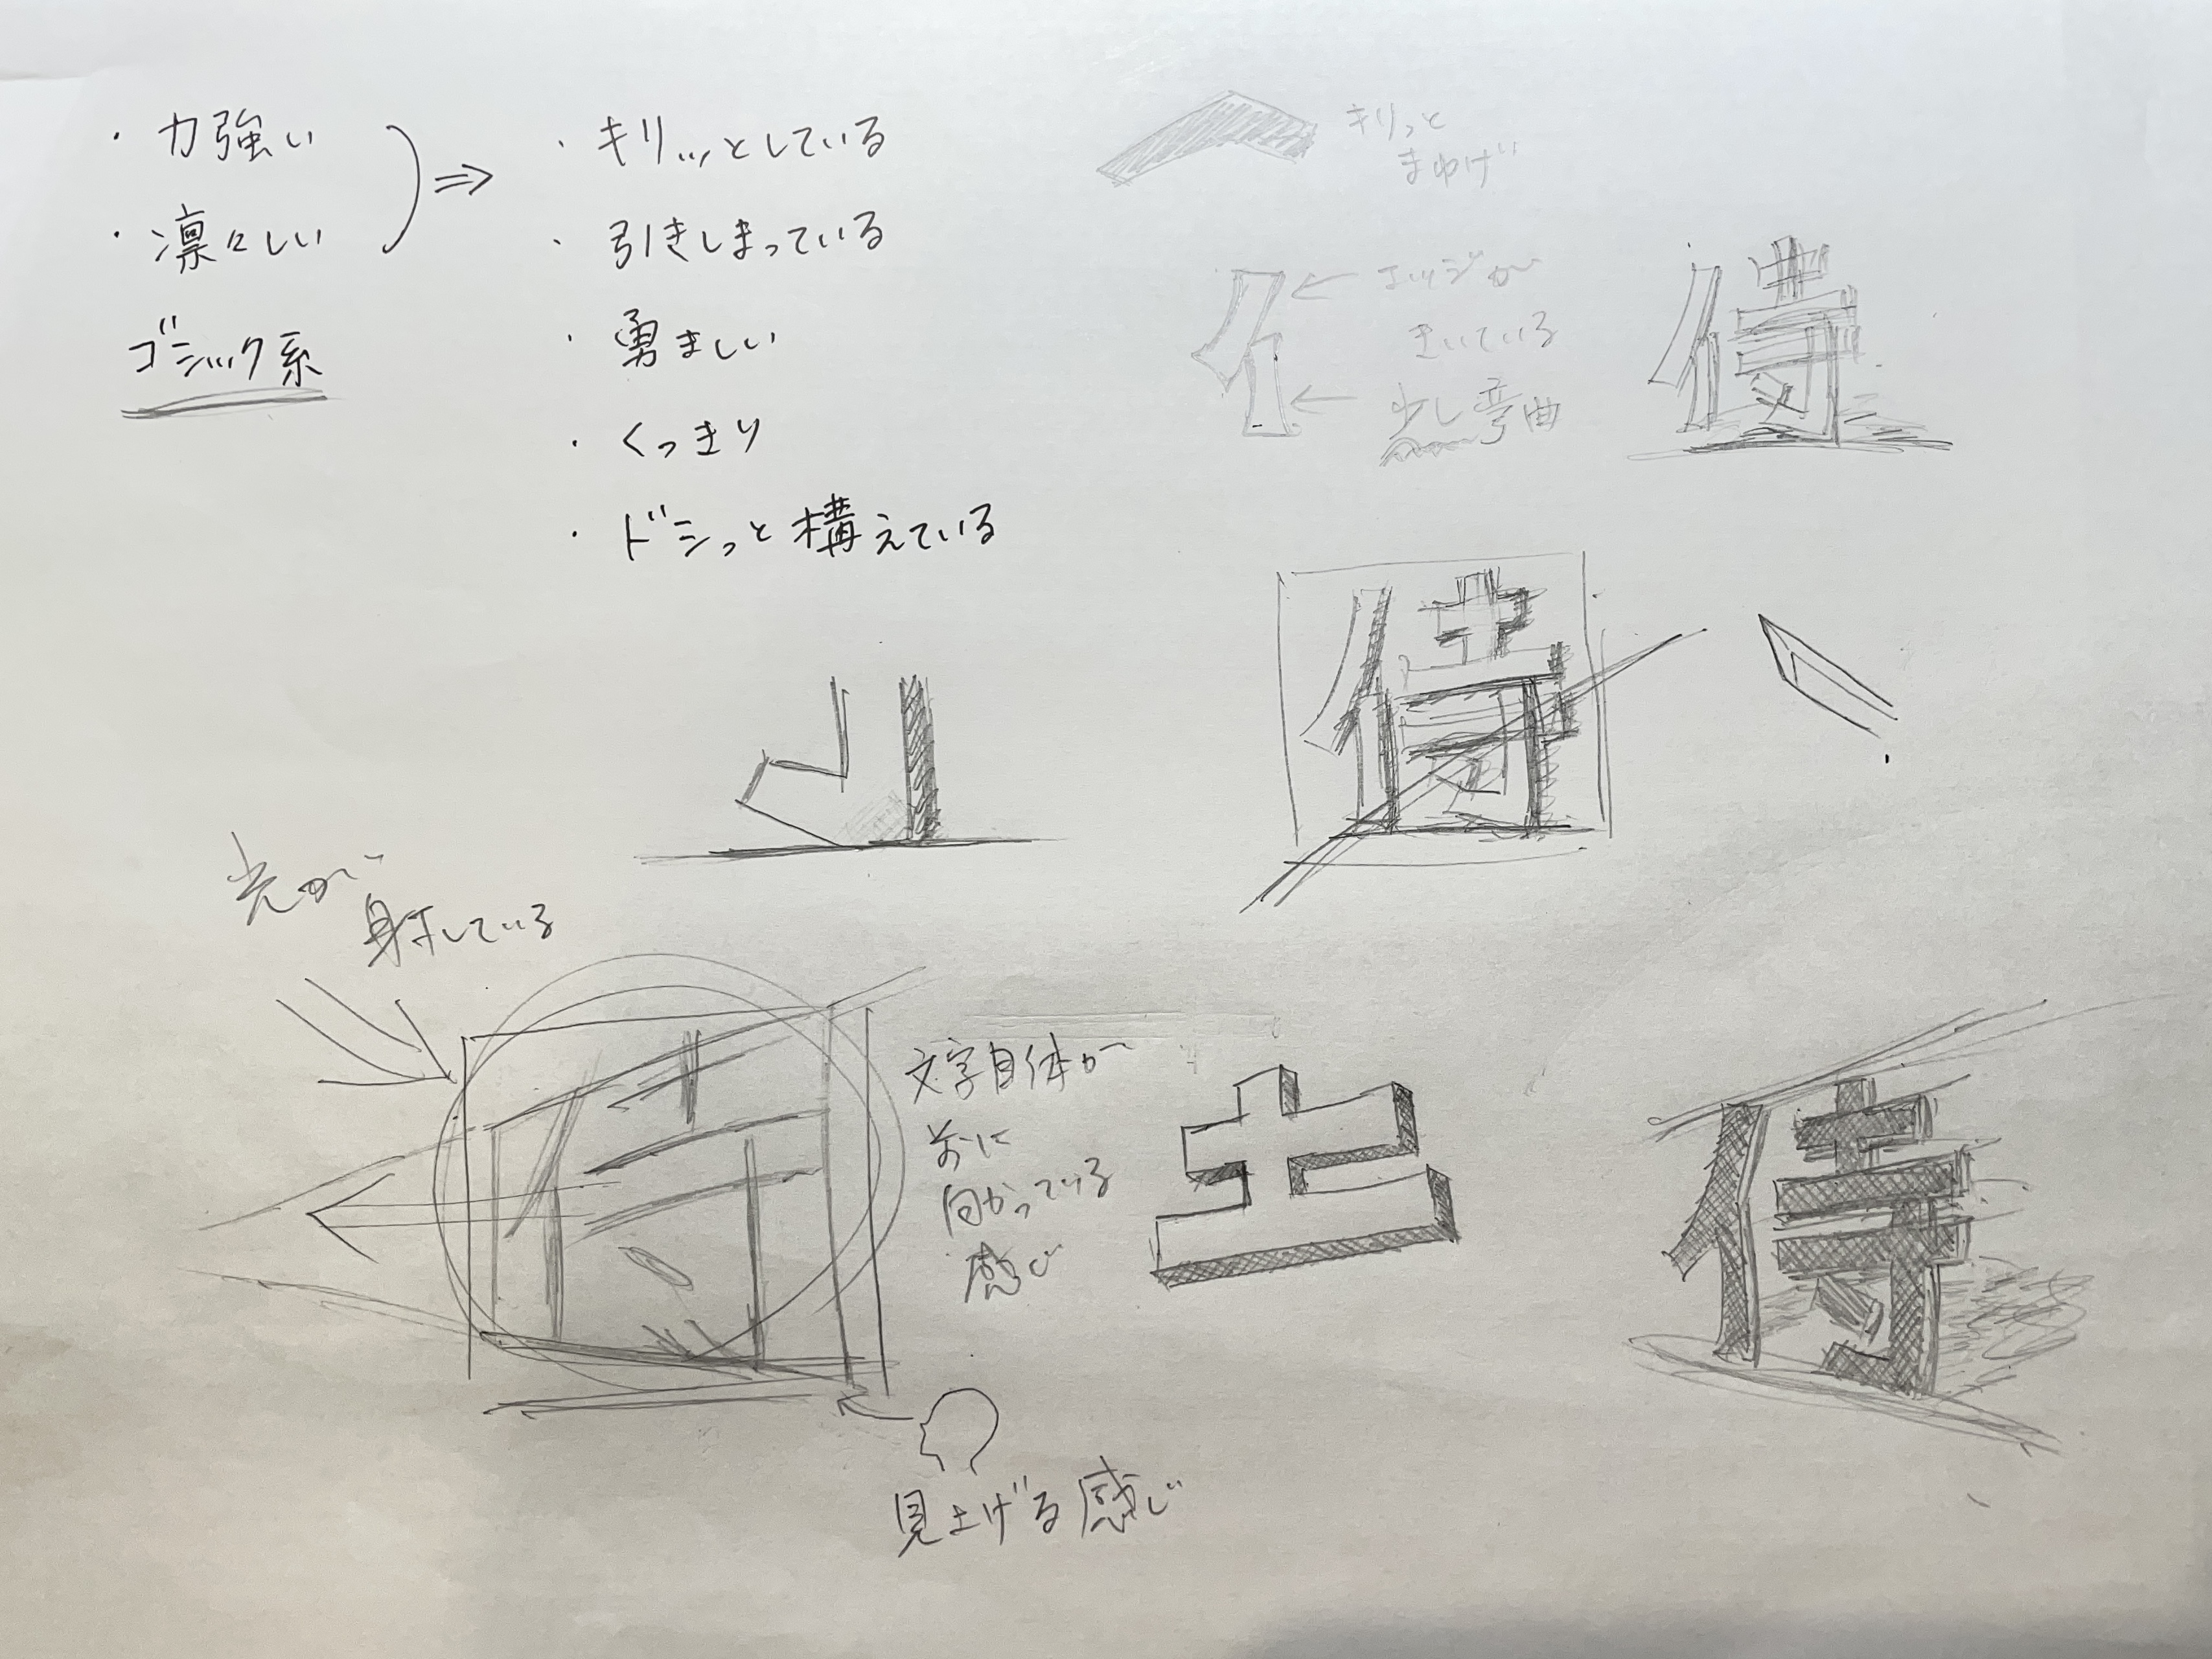 ・力強い
・凛々しい
ゴシック系
・キリッとしている
・引きしまっている
・勇ましい
・くっきり
・ドシっと構えている
キリっと
まゆげ
エッジが
きいている
少し弯曲
侍
侍
光が
射している
文字自体が
前に
向かっている
感じ
土
侍
見上げる感じ